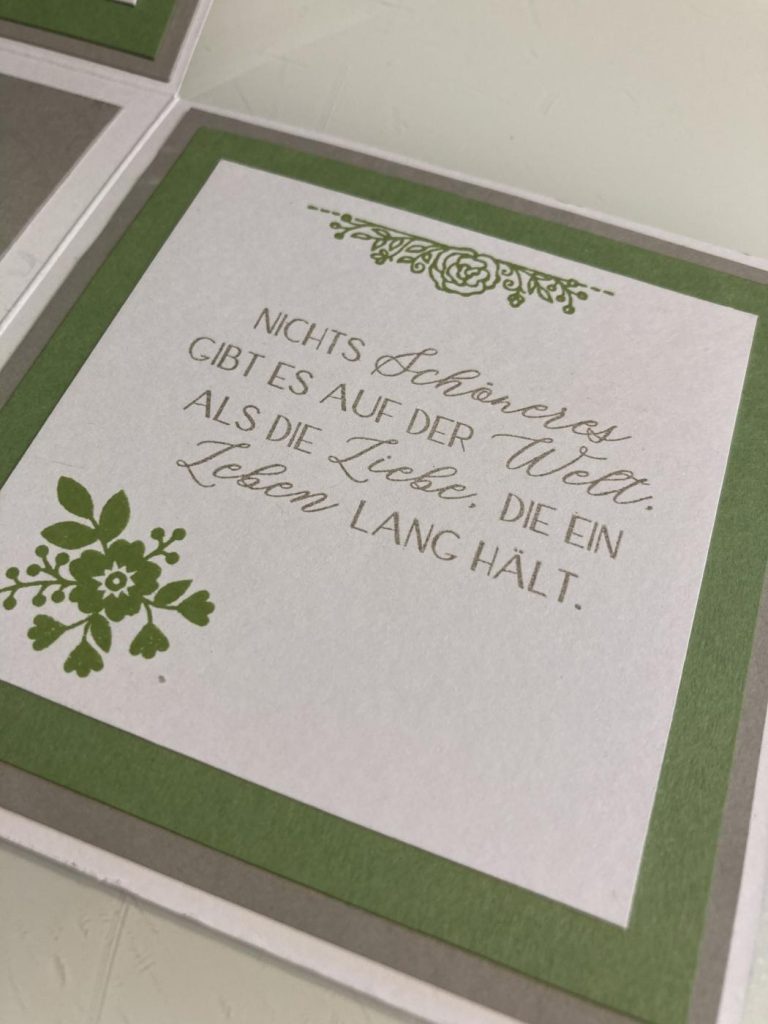 NICHTS Schöneres
GIBT ES AUF DER Welt.
ALS DIE Liebe, DIE EIN
Leben LANG HÄLT.